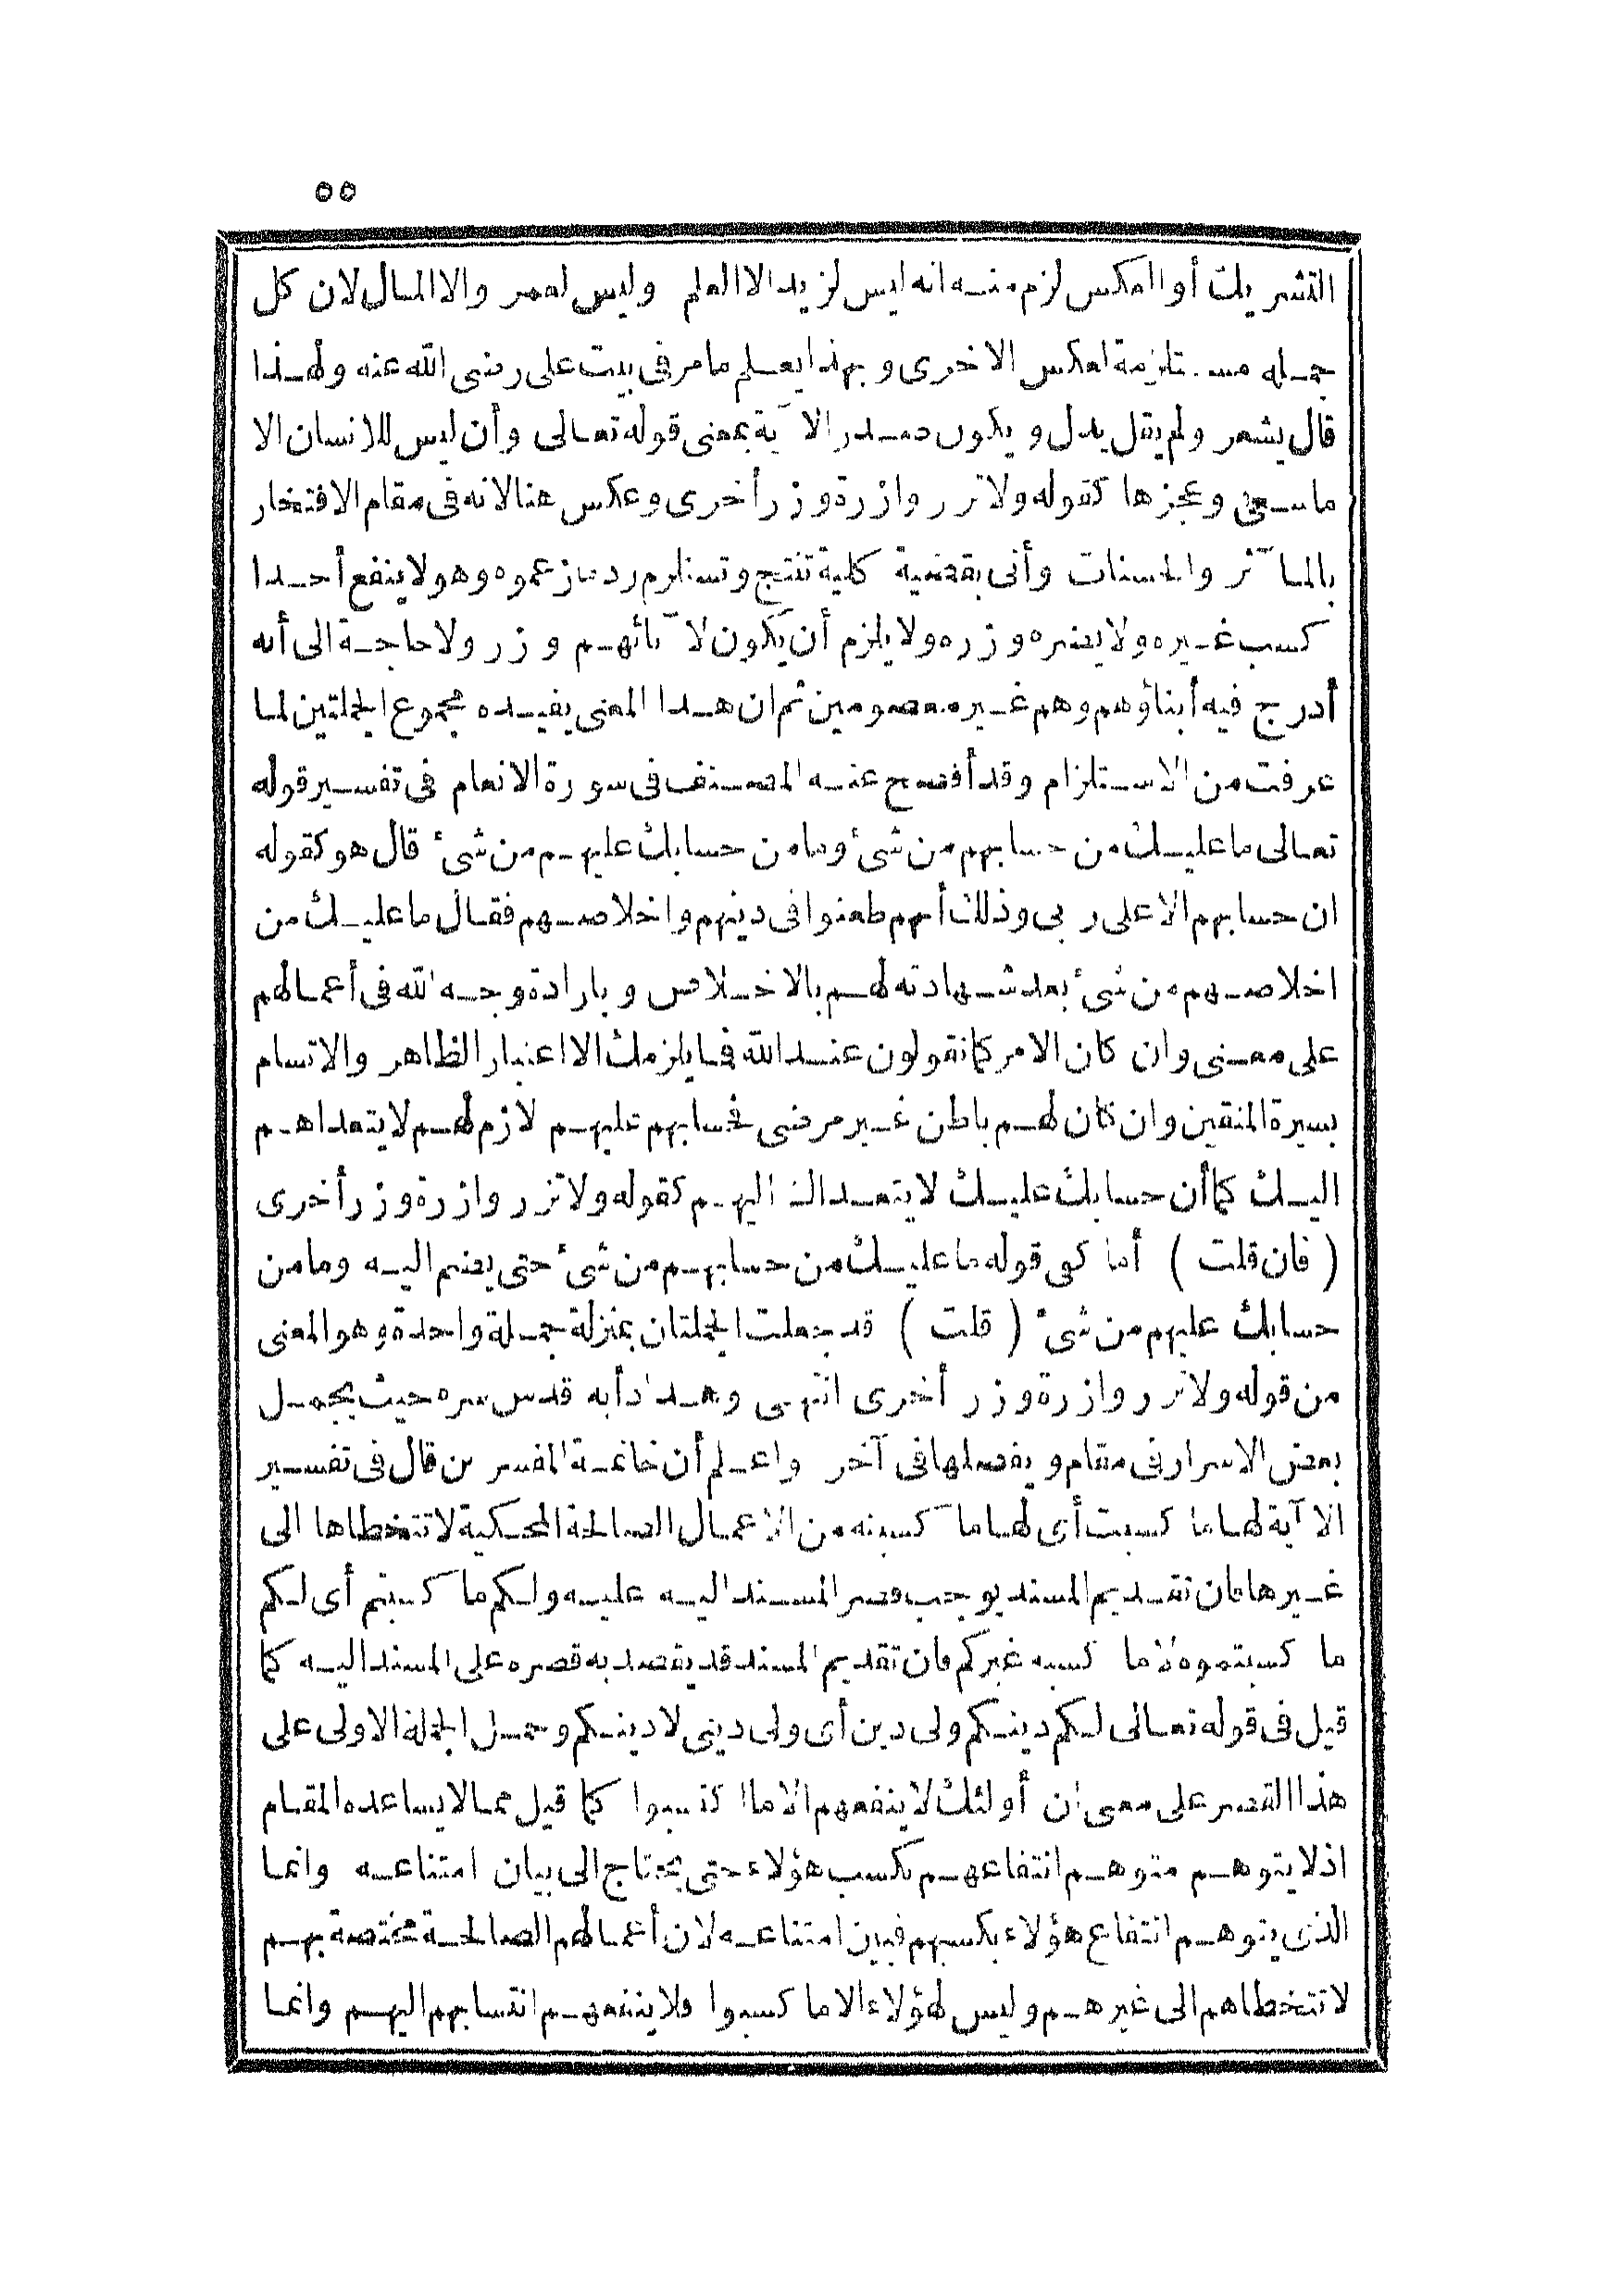 ٥٥
التشريك أو العكس لزم منه انه ليس لزيد الا العلم وليس لعمرو الا المال لان كل
جملة مستلزمة لعكس الاخرى وبهذا يعلم ما مر فى بيت على رضى الله عنه ولهذا
قال يشعر ولم يقل يدل ويكون صدر الآية بمعنى قوله تعالى وأن ليس للانسان الا
ما سعى وعجزها كقوله ولا تزر وازرة وزر أخرى وعكس هنا لانه فى مقام الافتخار
بالمآثر والحسنات وأتى بقضية كلية تنتج وتستلزم رد ما زعموه وهو لا ينفع أحدا
كسب غيره ولا يضره وزره ولا يلزم أن يكون لآبائهم وزر ولا حاجة الى أنه
أدرج فيه أبناؤهم وهم غير معصومين ثم ان هذا المعنى يفيده مجموع الجملتين لما
عرفت من الاستلزام وقد أفصح عنه المصنف فى سورة الانعام فى تفسير قوله
تعالى ما عليك من حسابهم من شئ وما من حسابك عليهم من شئ قال هو كقوله
ان حسابهم الا على ربى وذلك أنهم طعنوا فى دينهم واخلاصهم فقال ما عليك من
اخلاصهم من شئ بعد شهادته لهم بالاخلاص وبارادة وجه الله فى أعمالهم
على معنى وان كان الامر كما تقولون عند الله فما يلزمك الا اعتبار الظاهر والاتسام
بسيرة المتقين وان كان لهم باطن غير مرضى فحسابهم عليهم لازم لهم لا يتعداهم
اليك كما أن حسابك عليك لا يتعداك اليهم كقوله ولا تزر وازرة وزر أخرى
( فان قلت ) أما كفى قوله ما عليك من حسابهم من شئ حتى يضم اليه وما من
حسابك عليهم من شئ ( قلت ) قد جعلت الجملتان بمنزلة جملة واحدة وهو المعنى
من قوله ولا تزر وازرة وزر أخرى انتهى وهذا دأبه قدس سره حيث يجمل
بعض الاسرار فى مقام ويفصلها فى آخر واعلم أن خاتمة المفسرين قال فى تفسير
الآية لها ما كسبت أى لها ما كسبته من الاعمال الصالحة المحكية لا تتخطاها الى
غيرها فان تقديم المسند يوجب قصر المسند اليه عليه ولكم ما كسبتم أى لكم
ما كسبتموه لا ما كسبه غيركم فان تقديم المسند قد يقصد به قصره على المسند اليه كما
قيل فى قوله تعالى لكم دينكم ولى دين أى ولى دينى لا دينكم وحمل الجملة الاولى على
هذا القصر على معنى ان أولئك لا ينفعهم الا ما اكتسبوا كما قيل مما لا يساعده المقام
اذ لا يتوهم متوهم انتفاعهم بكسب هؤلاء حتى يحتاج الى بيان امتناعه وانما
الذى يتوهم انتفاع هؤلاء بكسبهم فبين امتناعه لان أعمالهم الصالحة مختصة بهم
لا تتخطاهم الى غيرهم وليس لهؤلاء الا ما كسبوا فلا ينفعهم انتسابهم اليهم وانما